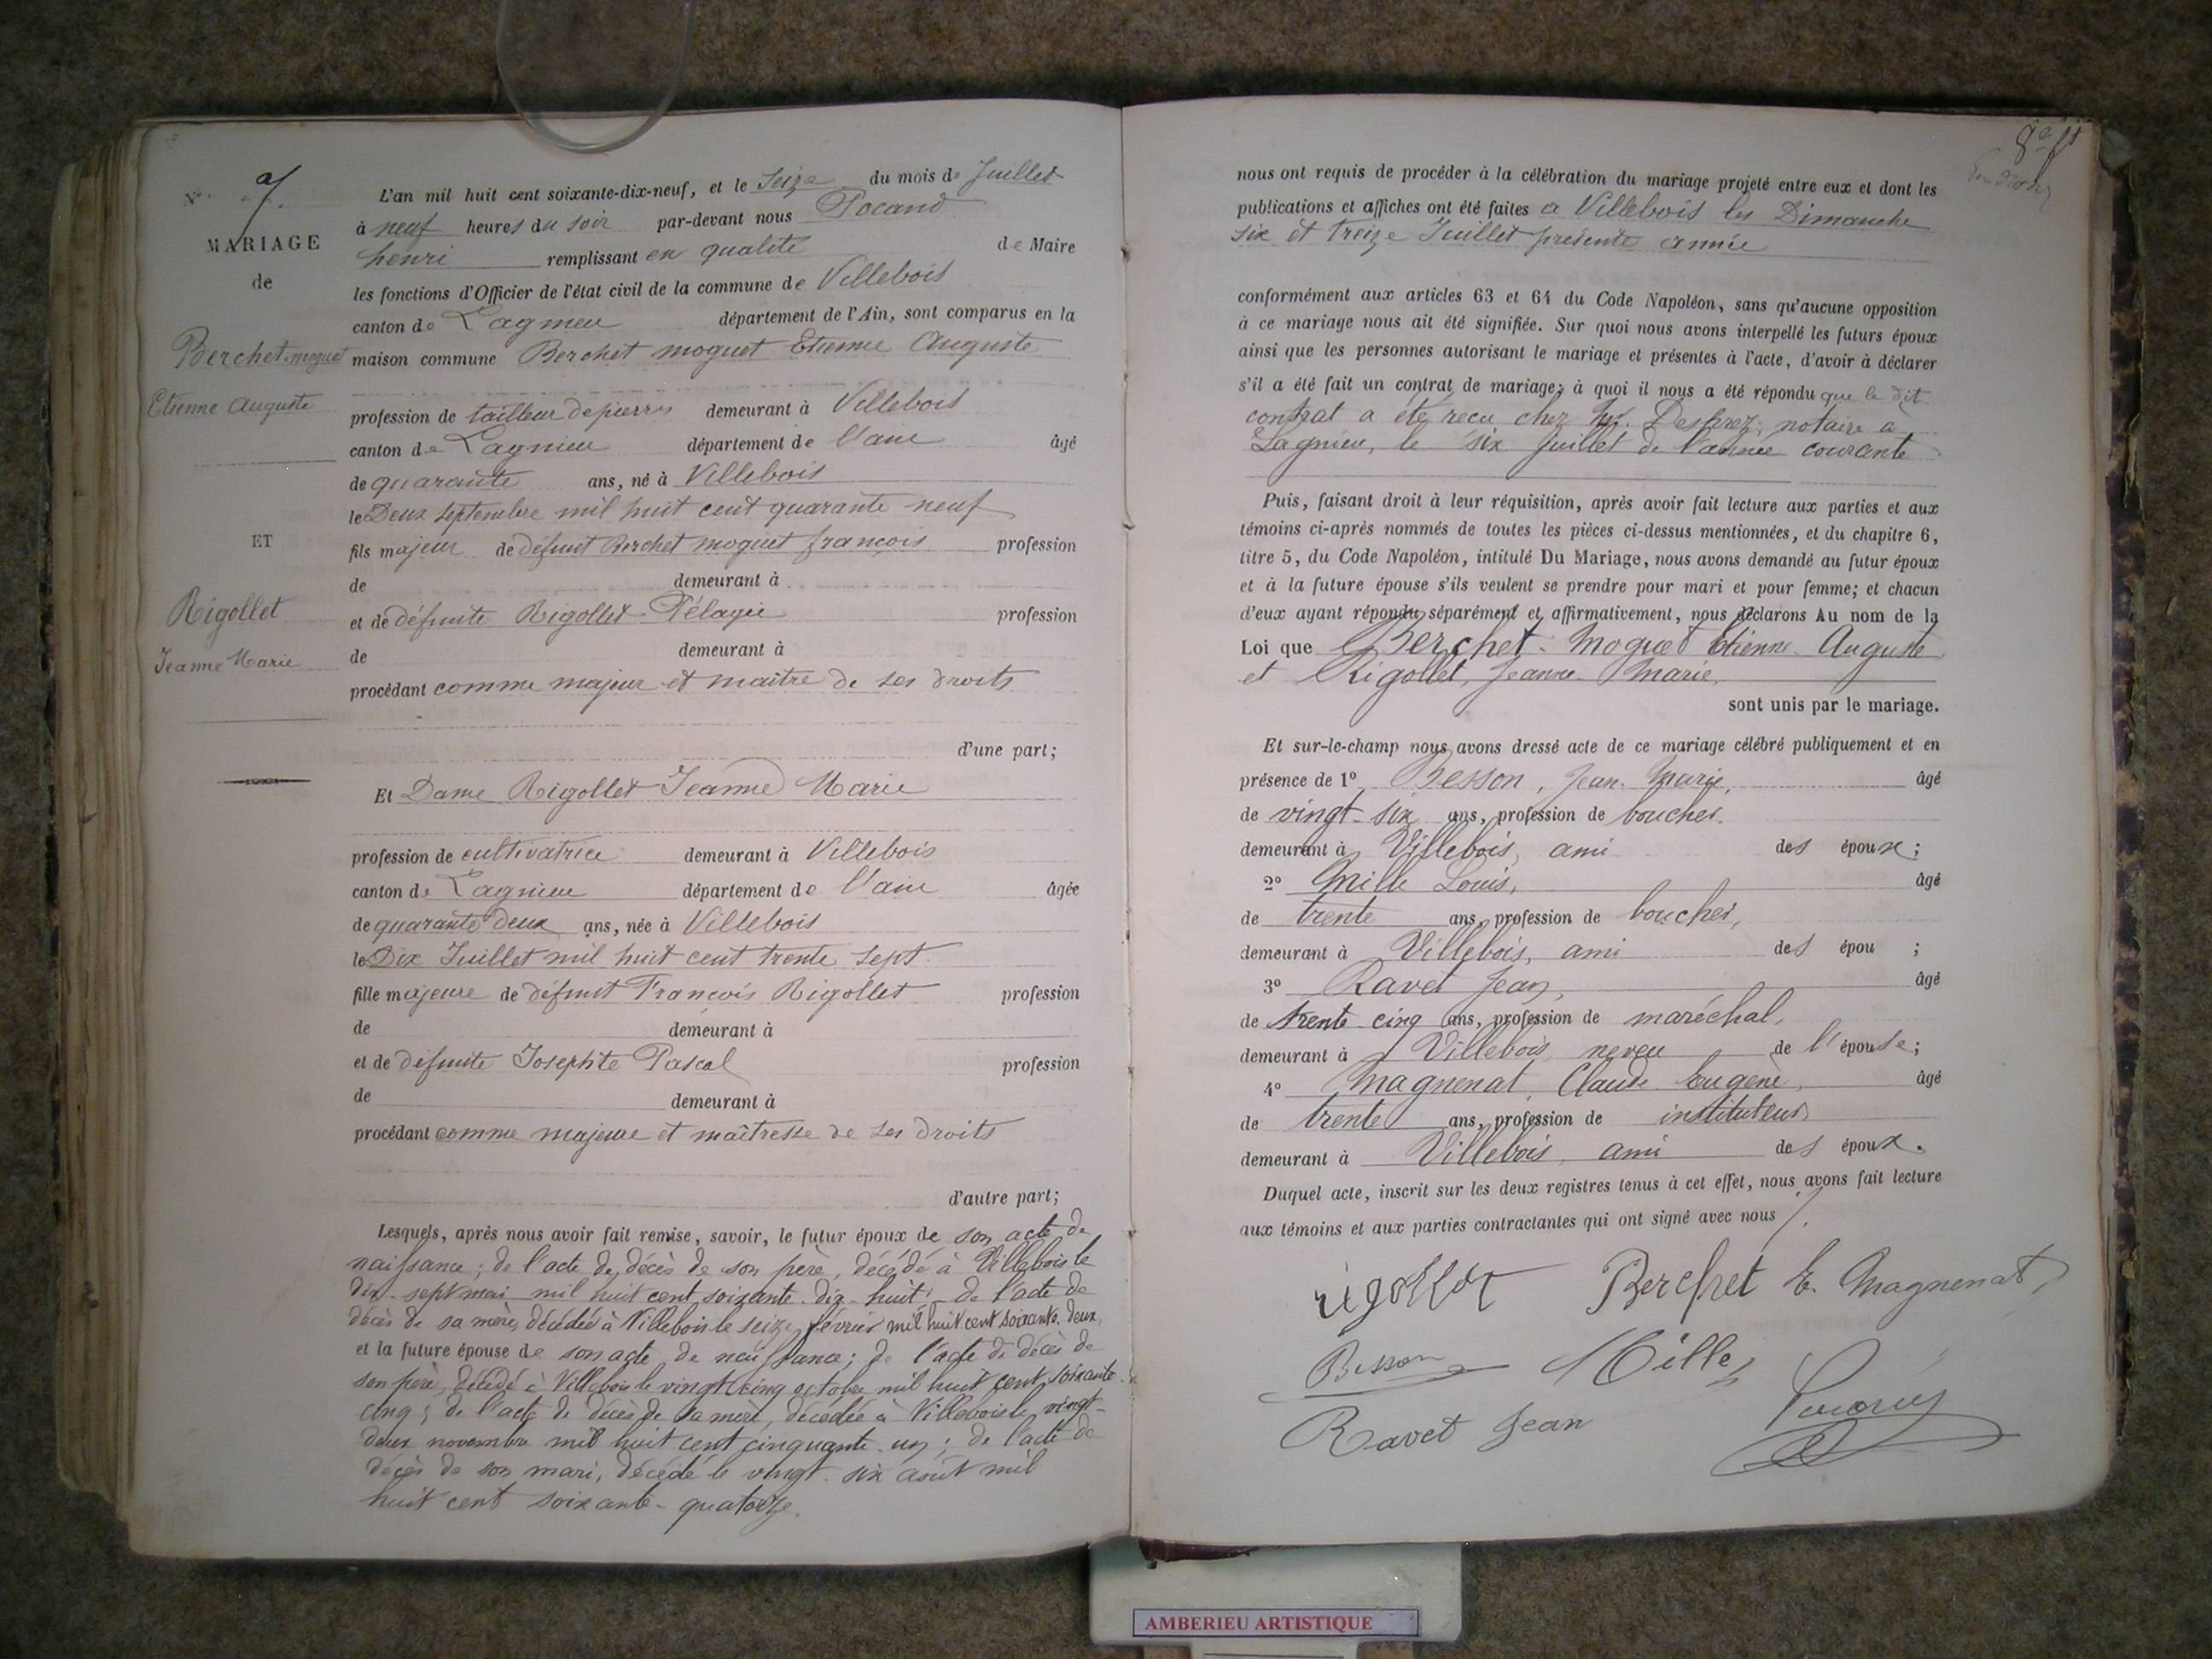 N° 7.
MARIAGE
de
Berchet-moguet
Etienne Auguste
ET
Rigollet
Jeanne Marie
L'an mil huit cent soixante-dix-neuf, et le Seize du mois de Juillet
à neuf heures du soir par-devant nous Pocand
henri remplissant en qualité de Maire
les fonctions d'Officier de l'état civil de la commune de Villebois
canton de Lagnieu département de l'Ain, sont comparus en la
maison commune Berchet moguet Etienne Auguste
profession de tailleur de pierres demeurant à Villebois
canton de Lagnieu département de l'ain âgé
de quarante ans, né à Villebois
le Deux septembre mil huit cent quarante neuf
fils majeur de défunt Berchet moguet françois profession
de demeurant à
et de défunte Rigollet Pélagie profession
de demeurant à
procédant comme majeur et maître de ses droits
d'une part;
Et Dame Rigollet Jeanne Marie
profession de cultivatrice demeurant à Villebois
canton de Lagnieu département de l'ain âgée
de quarante deux ans, née à Villebois
le Dix Juillet mil huit cent trente sept
fille majeure de défunt François Rigollet profession
de demeurant à
et de défunte Josephte Pascal profession
de demeurant à
procédant comme majeure et maîtresse de ses droits
d'autre part;
Lesquels, après nous avoir fait remise, savoir, le futur époux de son acte de
naissance; de l'acte de décès de son père, décédé à Villebois le
dix-sept mai mil huit cent soixante-dix-huit; de l'acte de
décès de sa mère, décédée à Villebois le seize février mil huit cent soixante-deux,
et la future épouse de son acte de naissance; de l'acte de décès de
son père, décédé à Villebois le vingt cinq octobre mil huit cent soixante
cinq; de l'acte de décès de sa mère, décédée à Villebois le vingt-
deux novembre mil huit cent cinquante-un; de l'acte de
décès de son mari, décédé le vingt-six août mil
huit cent soixante-quatorze.
nous ont requis de procéder à la célébration du mariage projeté entre eux et dont les
publications et affiches ont été faites a Villebois les Dimanche
six et treize Juillet présente année
conformément aux articles 63 et 64 du Code Napoléon, sans qu'aucune opposition
à ce mariage nous ait été signifiée. Sur quoi nous avons interpellé les futurs époux
ainsi que les personnes autorisant le mariage et présentes à l'acte, d'avoir à déclarer
s'il a été fait un contrat de mariage; à quoi il nous a été répondu que le dit
contrat a été reçu chez notaire a
Lagnieu, le six juillet de l'année courante
Puis, faisant droit à leur réquisition, après avoir fait lecture aux parties et aux
témoins ci-après nommés de toutes les pièces ci-dessus mentionnées, et du chapitre 6,
titre 5, du Code Napoléon, intitulé Du Mariage, nous avons demandé au futur époux
et à la future épouse s'ils veulent se prendre pour mari et pour femme; et chacun
d'eux ayant répondu séparément et affirmativement, nous déclarons Au nom de la
Loi que Berchet-Moguet Etienne Auguste
et Rigollet, Jeanne Marie,
sont unis par le mariage.
Et sur-le-champ nous avons dressé acte de ce mariage célébré publiquement et en
présence de 1° Besson, Jean-Marie, âgé
de vingt-six ans, profession de boucher.
demeurant à Villebois, ami des époux;
2° Mille Louis, âgé
de trente ans, profession de boucher,
demeurant à Villebois, ami des épou ;
3° Ravet Jean, âgé
de trente cinq ans, profession de maréchal,
demeurant à Villebois neveu de l'épouse;
4° Magnenat, Claude Eugène, âgé
de trente ans, profession de instituteur
demeurant à Villebois, ami des époux.
Duquel acte, inscrit sur les deux registres tenus à cet effet, nous avons fait lecture
aux témoins et aux parties contractantes qui ont signé avec nous
rigollet Berchet E. Magnenat
Besson Mille
Ravet Jean
AMBERIEU ARTISTIQUE